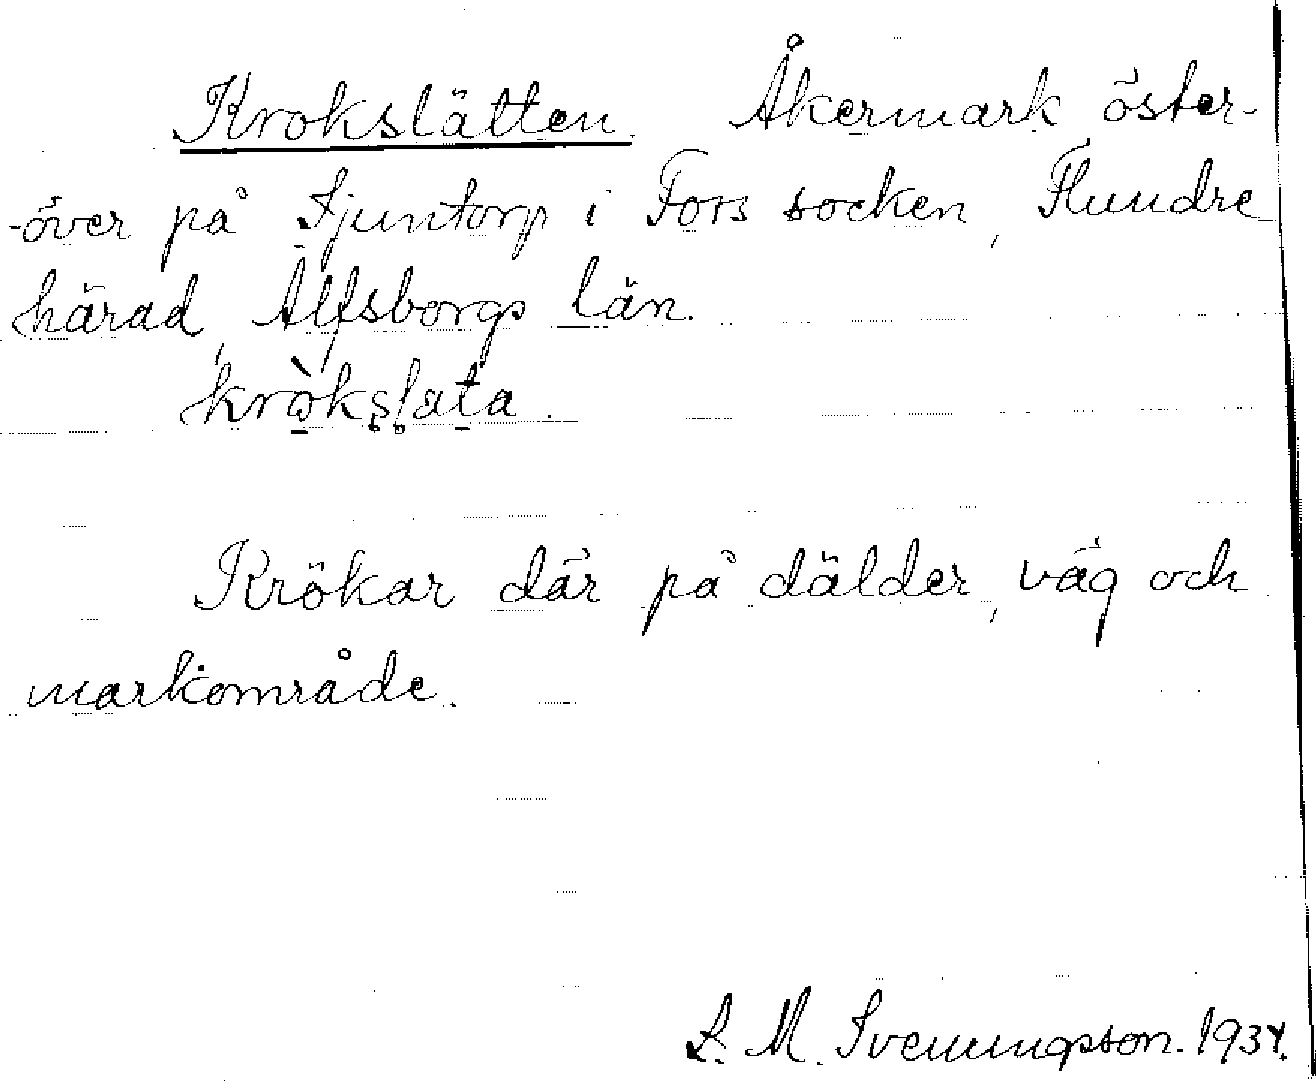 Krokslätten. Åkermark öster-
-över på Sjuntorp i Fors socken, Flundre
härad, Älfsborgs län.
kròkslata.
Krökar där på dälder, väg och
markområde.
L. M. Svenungsson. 1934.